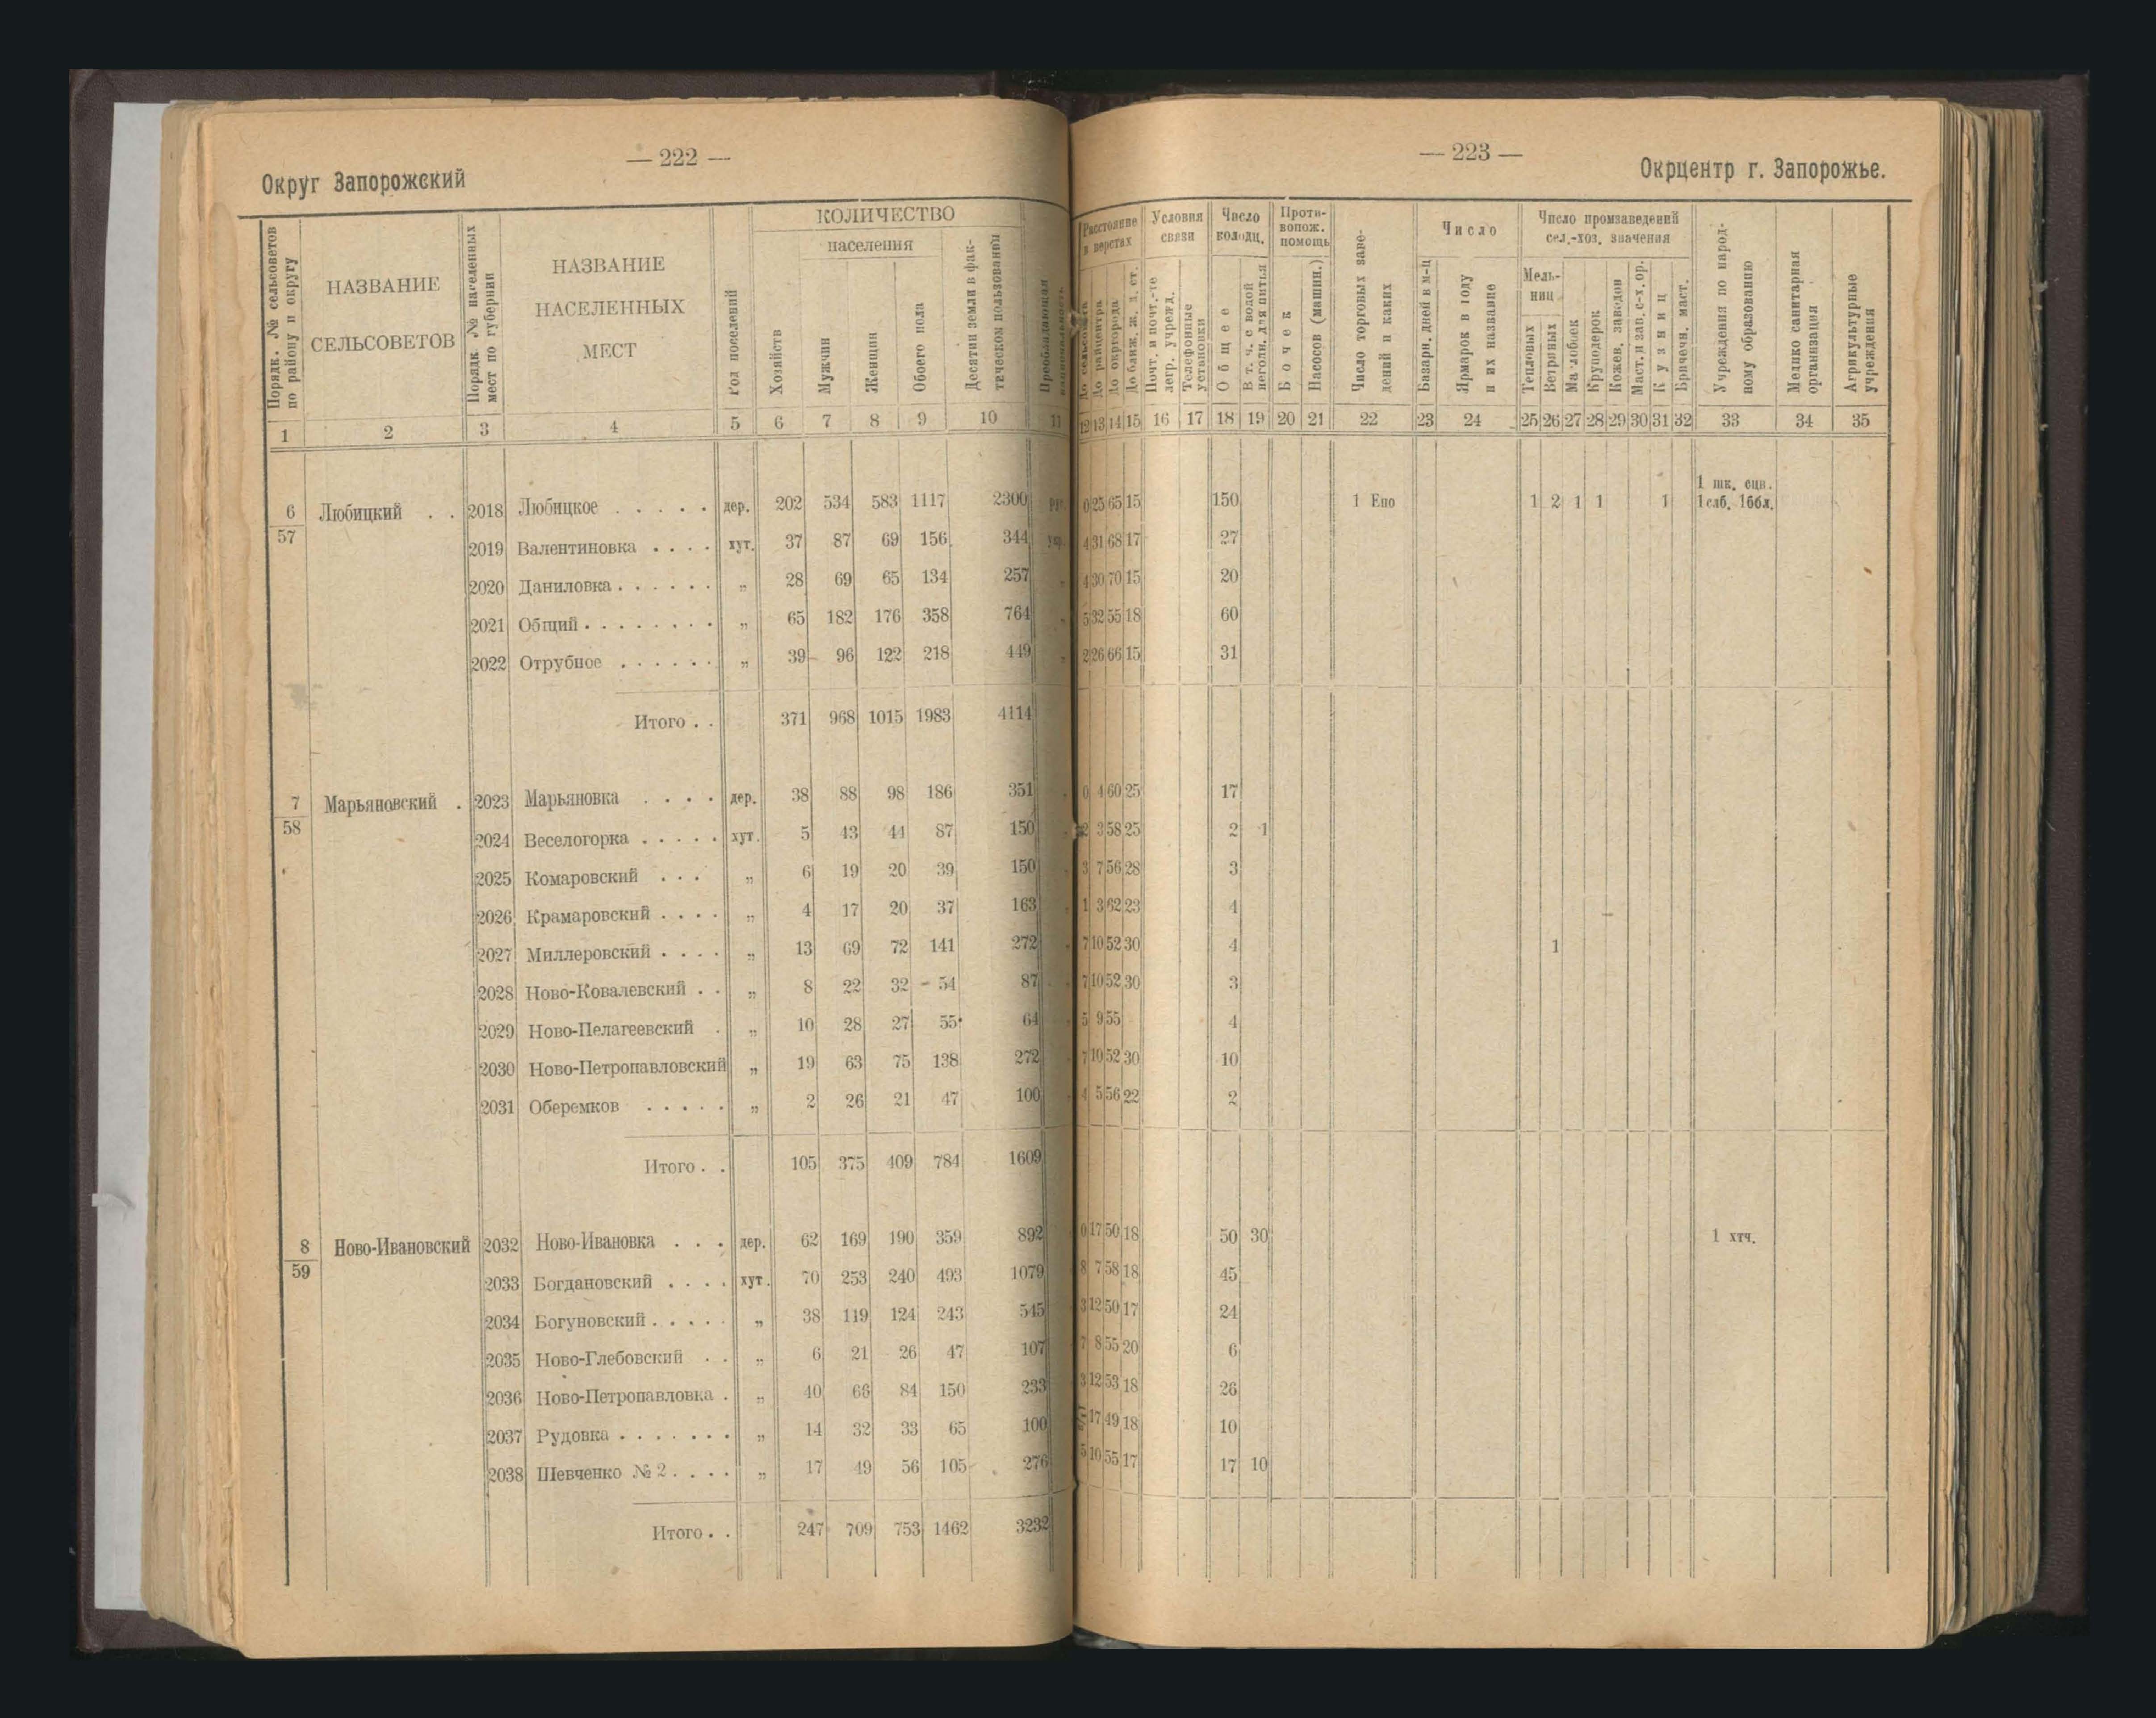 — 222 —
Округ Запорожский
Порядк. № сельсоветов по району и округу
НАЗВАНИЕ СЕЛЬСОВЕТОВ
Порядк. № населенных мест по губернии
НАЗВАНИЕ НАСЕЛЕННЫХ МЕСТ
Род поселений
КОЛИЧЕСТВО
населения
Хозяйств
Мужчин
Женщин
Обоего пола
Десятин земли в фактическом пользовании
Преобладающая национальность
1 2 3 4 5 6 7 8 9 10 11
6/57 Любицкий . . 2018 Любицкое . . . . . дер. 202 534 583 1117 2300
2019 Валентиновка . . . . хут. 37 87 69 156 344
2020 Даниловка . . . . . . „ 28 69 65 134 257
2021 Общий . . . . . . . . „ 65 182 176 358 764
2022 Отрубное . . . . . . „ 39 96 122 218 449
Итого . . 371 968 1015 1983 4114
7/58 Марьяновский . 2023 Марьяновка . . . . дер. 38 88 98 186 351
2024 Веселогорка . . . . . хут. 5 43 44 87 150
2025 Комаровский . . . „ 6 19 20 39 150
2026 Крамаровский . . . . „ 4 17 20 37 163
2027 Миллеровский . . . . „ 13 69 72 141 272
2028 Ново-Ковалевский . . „ 8 22 32 54 87
2029 Ново-Пелагеевский . „ 10 28 27 55 64
2030 Ново-Петропавловский „ 19 63 75 138 272
2031 Оберемков . . . . . „ 2 26 21 47 100
Итого . . 105 375 409 784 1609
8/59 Ново-Ивановский 2032 Ново-Ивановка . . . дер. 62 169 190 359 892
2033 Богдановский . . . . хут. 70 253 240 493 1079
2034 Богуновский . . . . . „ 38 119 124 243 545
2035 Ново-Глебовский . . „ 6 21 26 47 107
2036 Ново-Петропавловка . „ 40 66 84 150 233
2037 Рудовка . . . . . . . „ 14 32 33 65 100
2038 Шевченко № 2 . . . . „ 17 49 56 105 276
Итого . . 247 709 753 1462 3232
— 223 —
Окрцентр г. Запорожье.
Расстояние в верстах
До сельсовета
До райцентра
До окргорода
До ближ. ж. д. ст.
Условия связи
Почт. и почт.-телегр. учрежд.
Телефонные установки
Число колодц.
Общее
В т. ч. с водой негодн. для питья
Противопож. помощь
Бочек
Насосов (машин.)
Число торговых заведений и каких
Число
Базарн. дней в м-ц
Ярмарок в году и их название
Число промзаведений сел.-хоз. значения
Мельниц
Тепловых
Ветряных
Маслобоек
Круподерок
Кожев. заводов
Маст. и зав. с-х. ор.
Кузниц
Бричечн. маст.
Учреждения по народному образованию
Медико санитарная организация
Агрикультурные учреждения
12 13 14 15 16 17 18 19 20 21 22 23 24 25 26 27 28 29 30 31 32 33 34 35
0 25 65 15 150 1 Епо 1 2 1 1 1 1 шк. сцв. 1 слб. 1 ббл.
4 31 68 17 27
4 30 70 15 20
5 32 55 18 60
2 26 66 15 31
0 4 60 25 17
2 3 58 25 2 1
3 7 56 28 3
1 3 62 23 4
7 10 52 30 4 1
7 10 52 30 3
5 9 55 4
7 10 52 30 10
4 5 56 22 2
0 17 50 18 50 30 1 хтч.
8 7 58 18 45
3 12 50 17 24
7 8 55 20 6
3 12 53 18 26
17 49 18 10
5 10 55 17 17 10